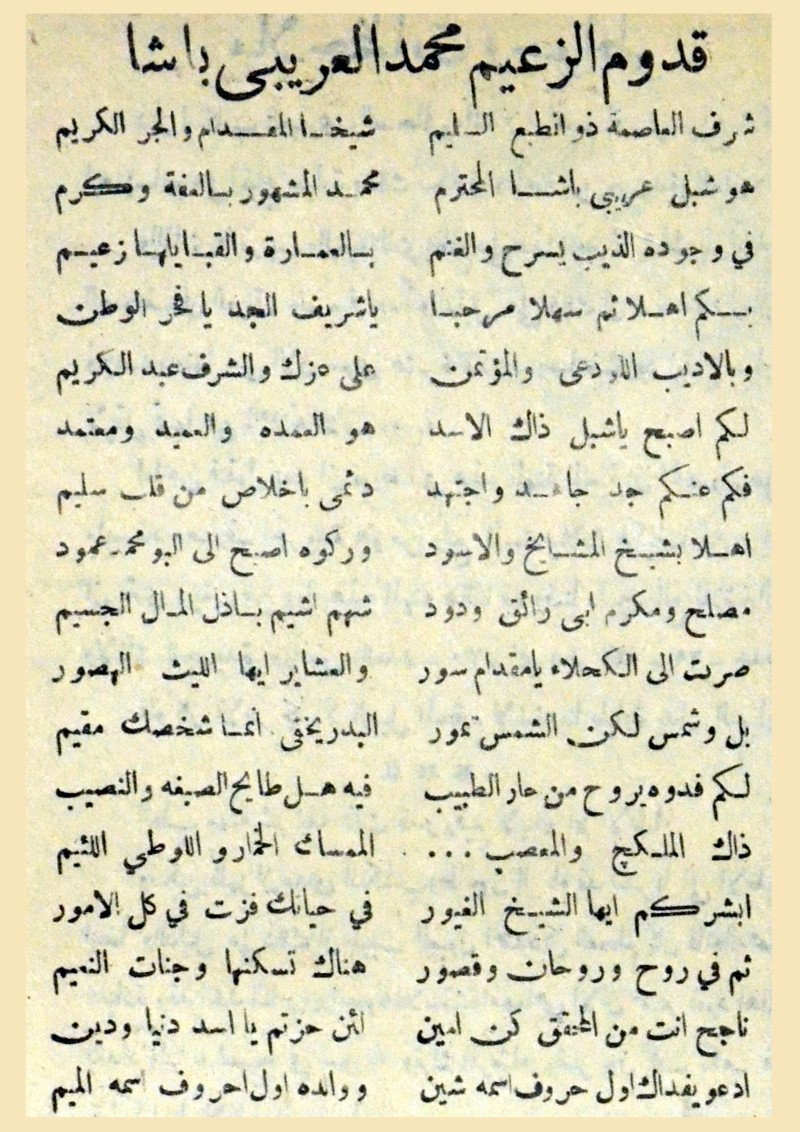 قدوم الزعيم محمد العريبي باشا
شرف العاصمة ذو انطبع السليم شيخنا المقدام والحبر الكريم
هو شبل عريبي باشا المحترم محمد المشهور بالعفة وكرم
في وجوده الذيب يسرح والغنم بالعمارة والقبايلها زعيم
بكم اهلا ثم سهلا مرحبا ياشريف الجد يا فخر الوطن
وبالاديب والمؤتمن على عزك والشرف عبد الكريم
لكم اصبح ياشبل ذاك الاسد هو العمده والعميد ومعتمد
فكم عنكم جد جاهد واجتهد دئمى باخلاص من قلب سليم
اهلا بشيخ المشايخ والاسود وركوه اصبح الى البو محمد عمود
مصلح ومكرم ابى رائق ودود شهم اشيم باذل المال الجسيم
صرت الى الكحلاء يامقدام سور والعشاير ايها الليث الهصور
بل وشمس لكن الشمس تمور البدر يختفى انما شخصك مقيم
لكم فدوه يروح من حار الطبيب فيه هل طايح الصبغه والنصيب
ذاك الملكچ والمعصب ... الممساك الخمار واللوطي اللئيم
ابشركم ايها الشيخ الغيور في حياتك فزت في كل الامور
ثم في روح وروحان وقصور هناك تسكنها وجنات النعيم
ناجح انت من المحقق كن امين لئن حزتم يا اسد دنيا ودين
ادعو يفداك اول حروف اسمه شين ووالده اول احروف اسمه الميم